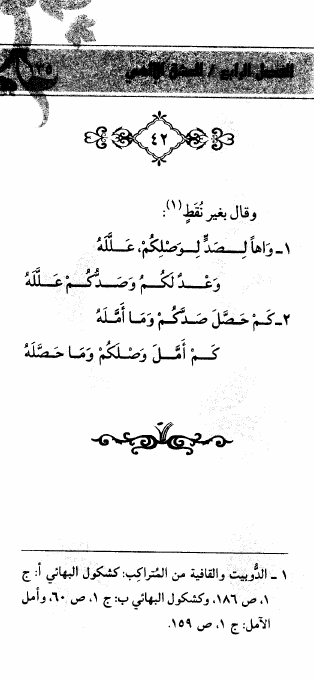 الفصل الرابع / العشق الإلهي
١٣٥
٤٢
وقال بغير نُقَطٍ(١):
١ـ وَاهاً لِـصَدٍّ لِـوَصْلِكُمْ، عَـلَّلَهُ
وَعْـدٌ لَكُـمُ وَصَـدُّكُـمْ عَلَّلَهُ
٢ـ كَـمْ حَصَّلَ صَدَّكُـمْ وَمَـا أَمَّـلَهُ
كَـمْ أَمَّـلَ وَصْـلَكُمْ وَمَـا حَـصَّلَهُ
١ ـ الدُّوبيت والقافية من المُتراكِب: كشكول البهائي أ: ج
١، ص ١٨٦، وكشكول البهائي ب: ج ١، ص ٦٠، وأمل
الآمل: ج ١، ص ١٥٩.